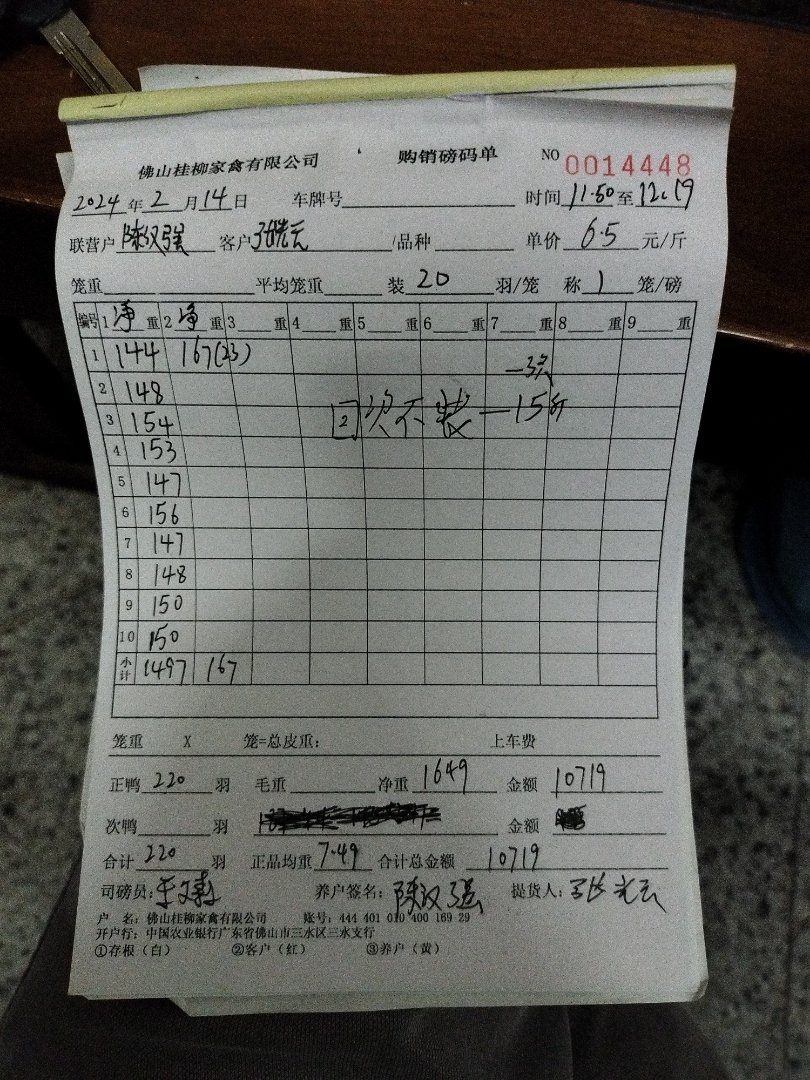 佛山桂柳家禽有限公司 购销磅码单 NO 0014448
2024年2月14日 车牌号 时间11.50至12.19
联营户陈汉强 客户 /品种 单价6.5元/斤
笼重 平均笼重 装20羽/笼 称1笼/磅
编号 1净重 2净重 3重 4重 5重 6重 7重 8重 9重
1 144 167(23)
2 148
3 154 回 次不装—15斤
4 153
5 147
6 156
7 147
8 148
9 150
10 150
小计 1497 167
笼重 X 笼=总皮重: 上车费
正鸭220羽 毛重 净重1649 金额10719
次鸭 羽 金额
合计220羽 正品均重7.49 合计总金额10719
司磅员: 养户签名:陈汉强 提货人:
户 名:佛山桂柳家禽有限公司 账号:444 401 010 400 169 29
开户行:中国农业银行广东省佛山市三水区三水支行
①存根(白) ②客户(红) ③养户(黄)